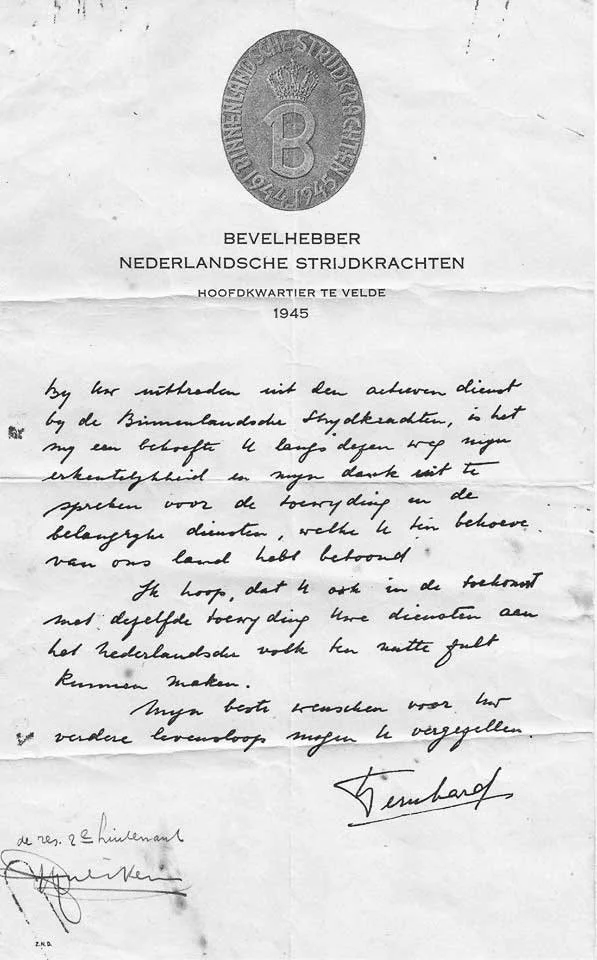 BINNENLANDSCHE STRIJDKRACHTEN
1944 1945
B
BEVELHEBBER
NEDERLANDSCHE STRIJDKRACHTEN
HOOFDKWARTIER TE VELDE
1945
By Uw uittreden uit den actieven dienst
by de Binnenlandsche Strydkrachten, is het
my een behoefte U langs dezen weg myn
erkentelykheid en myn dank uit te
spreken voor de toewyding en de
belangryke diensten, welke U ten behoeve
van ons land hebt betoond.
Ik hoop, dat U ook in de toekomst
met dezelfde toewyding Uwe diensten aan
het Nederlandsche volk ten nutte zult
kunnen maken.
Myn beste wenschen voor Uw
verdere levensloop mogen U vergezellen.
Bernhard
de res. 2e Luitenant
Z.N.D.